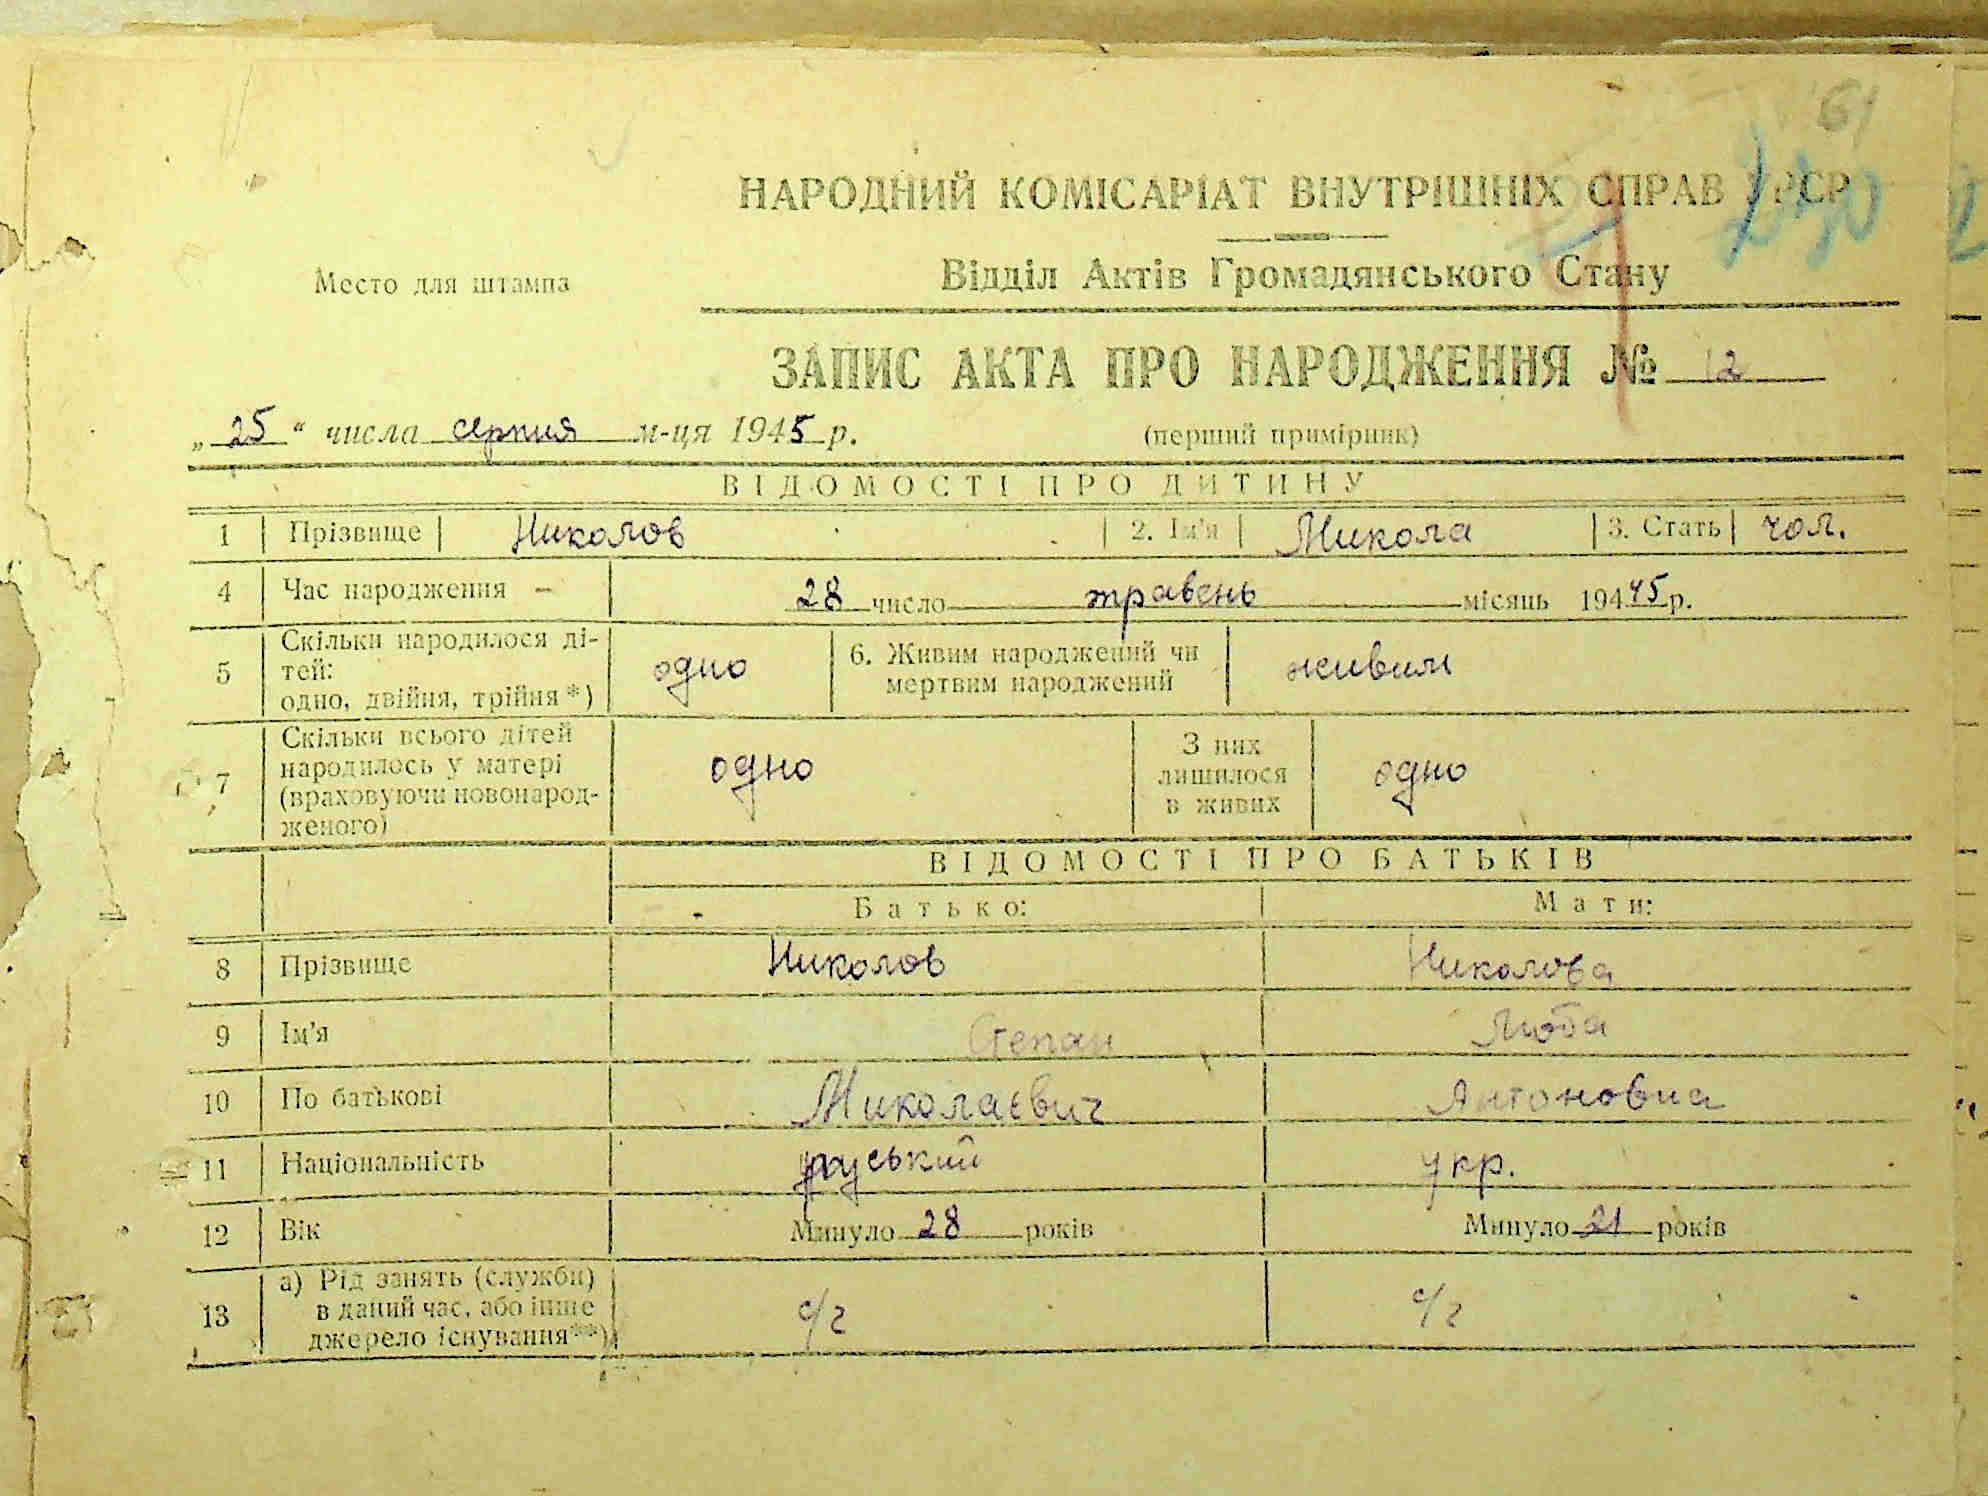 61
НАРОДНИЙ КОМІСАРІАТ ВНУТРІШНІХ СПРАВ УРСР
Место для штампа
Відділ Актів Громадянського Стану
ЗАПИС АКТА ПРО НАРОДЖЕННЯ № 12
„25“ числа серпня м-ця 1945 р.
(перший примірник)
ВІДОМОСТІ ПРО ДИТИНУ
1 Прізвище Николов 2. Ім'я Микола 3. Стать чол.
4 Час народження — 28 число травень місяць 19445 р.
5 Скільки народилося ді-
тей:
одно, двійня, трійня *) одно 6. Живим народжений чи
мертвим народжений живим
7 Скільки всього дітей
народилось у матері
(враховуючи новонарод-
женого) одно З них
лишилося
в живих одно
ВІДОМОСТІ ПРО БАТЬКІВ
Батько: Мати:
8 Прізвище Николов Николова
9 Ім'я Степан Люба
10 По батькові Миколаєвич Антоновна
11 Національність руський укр.
12 Вік Минуло 28 років Минуло 21 років
13 а) Рід занять (служби)
в даний час, або інше
джерело існування**) с/г с/г